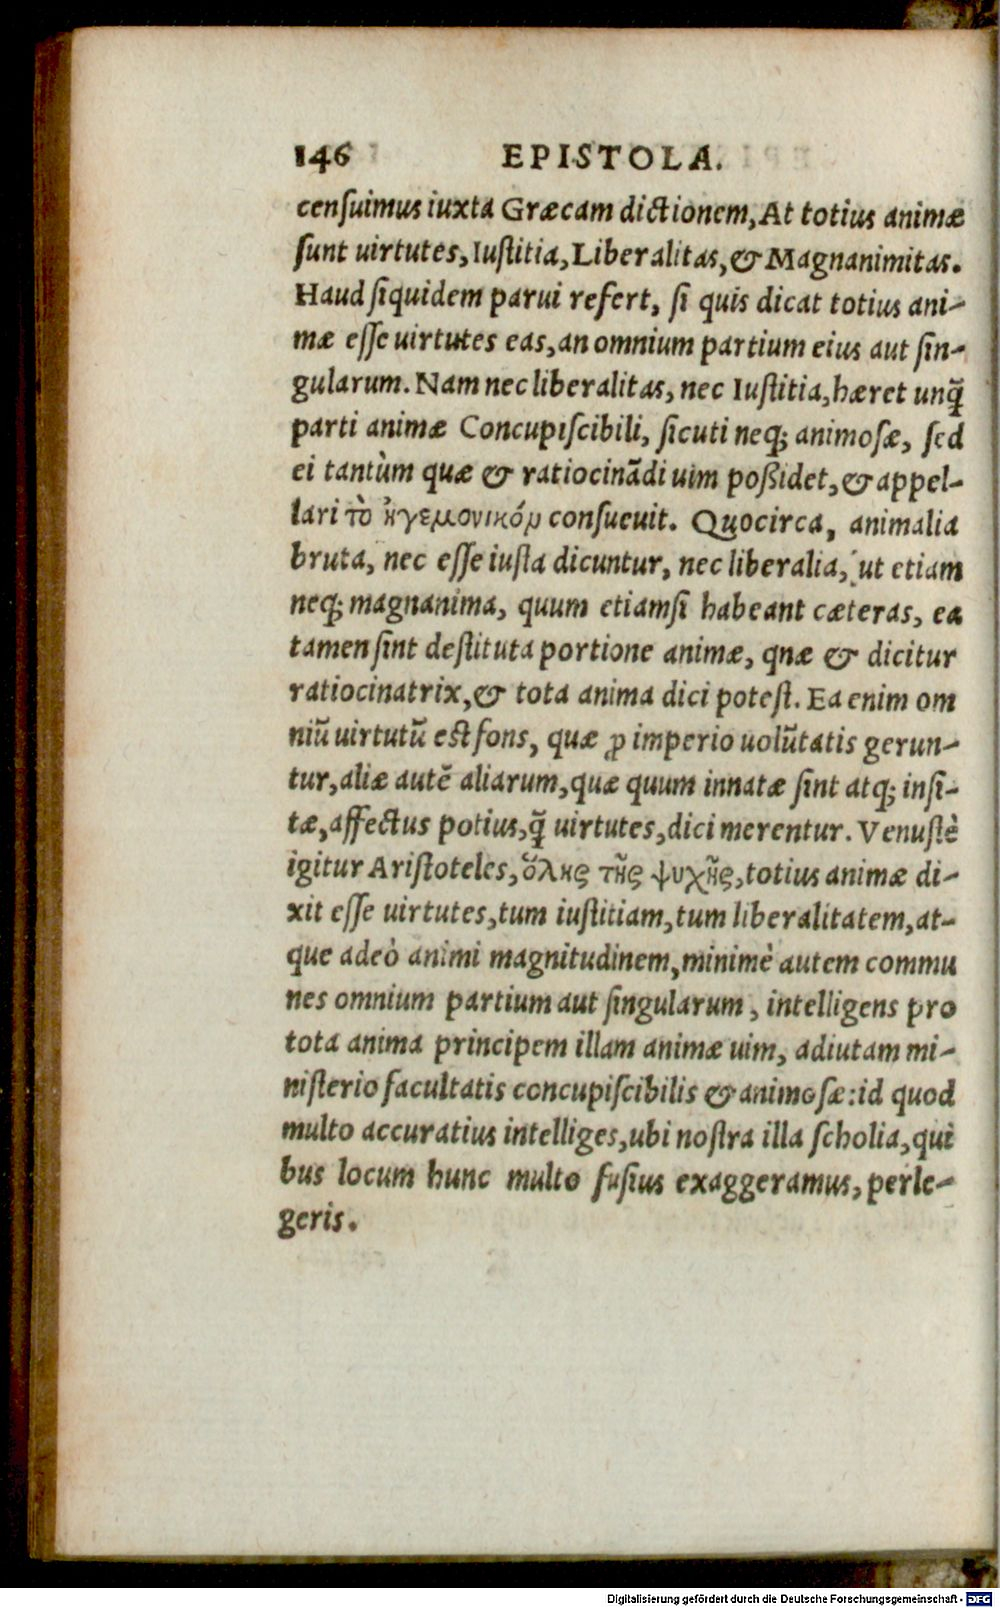 146 EPISTOLA.
cenſuimus iuxta Græcam dictionem, At totius animæ
ſunt uirtutes, Iuſtitia, Liberalitas, & Magnanimitas.
Haud ſiquidem parui refert, ſi quis dicat totius ani-
mæ eſſe uirtutes eas, an omnium partium eius aut ſin-
gularum. Nam nec liberalitas, nec Iuſtitia, hæret unq̃
parti animæ Concupiſcibili, ſicuti neq; animoſæ, ſed
ei tantùm quæ & ratiocinãdi uim poßidet, & appel-
lari τὸ ἡγεμονικόν conſueuit. Quocirca, animalia
bruta, nec eſſe iuſta dicuntur, nec liberalia, ut etiam
neq; magnanima, quum etiamſi habeant cæteras, ea
tamen ſint deſtituta portione animæ, qnæ & dicitur
ratiocinatrix, & tota anima dici poteſt. Ea enim om
niũ uirtutũ eſt fons, quæ ꝓ imperio uolũtatis gerun-
tur, aliæ autẽ aliarum, quæ quum innatæ ſint atq; inſi-
tæ, affectus potius, q̃ uirtutes, dici merentur. Venuſtè
igitur Ariſtoteles, ὅλης τῆς ψυχῆς, totius animæ di-
xit eſſe uirtutes, tum iuſtitiam, tum liberalitatem, at-
que adeò animi magnitudinem, minimè autem commu
nes omnium partium aut ſingularum, intelligens pro
tota anima principem illam animæ uim, adiutam mi-
niſterio facultatis concupiſcibilis & animoſæ: id quod
multo accuratius intelliges, ubi noſtra illa ſcholia, qui
bus locum hunc multo fuſius exaggeramus, perle-
geris.
Digitalisierung gefördert durch die Deutsche Forschungsgemeinschaft - DFG